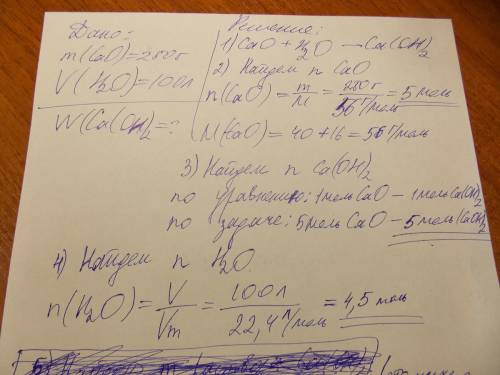 Дано:
m(CaO)=280г
V(H₂O)=100л
W(Ca(OH)₂=?
Решение:
1) CaO + H₂O → Ca(OH)₂
2) Найдем n CaO
n(CaO) = m/M = 280г/56г/моль = 5 моль
M(CaO) = 40+16 = 56г/моль
3) Найдем n Ca(OH)₂
по уравнению: 1моль CaO – 1моль Ca(OH)₂
по задаче: 5моль CaO – 5моль (CaOH)₂
4) Найдем n H₂O
n(H₂O) = V/Vm = 100л/22,4л/моль = 4,5 моль